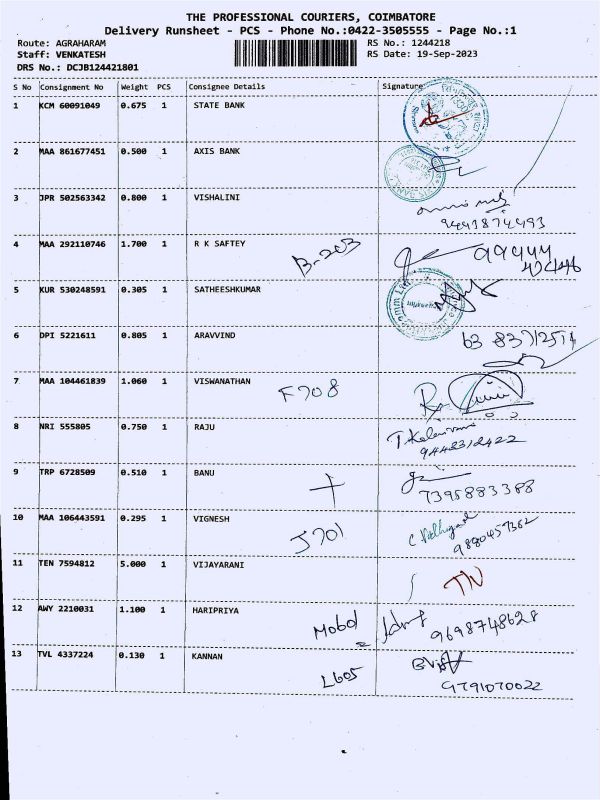 THE PROFESSIONAL COURIERS, COIMBATORE
Delivery Runsheet - PCS - Phone No.:0422-3505555 - Page No.:1
Route: AGRAHARAM RS No.: 1244218
Staff: VENKATESH RS Date: 19-Sep-2023
DRS No.: DCJB124421801
S No Consignment No Weight PCS Consignee Details Signature
1 KCM 60091049 0.675 1 STATE BANK
2 MAA 861677451 0.500 1 AXIS BANK
3 JPR 502563342 0.800 1 VISHALINI
9443874493
4 MAA 292110746 1.700 1 R K SAFTEY B-203
5 KUR 530248591 0.305 1 SATHEESHKUMAR
6 DPI 5221611 0.805 1 ARAVVIND
7 MAA 104461839 1.060 1 VISWANATHAN F708
8 NRI 555805 0.750 1 RAJU
9442312422
9 TRP 6728509 0.510 1 BANU
7395883388
10 MAA 106443591 0.295 1 VIGNESH J701
9880457362
11 TEN 7594812 5.000 1 VIJAYARANI TN
12 AWY 2210031 1.100 1 HARIPRIYA
9698748628
13 TVL 4337224 0.130 1 KANNAN L605
9791070022